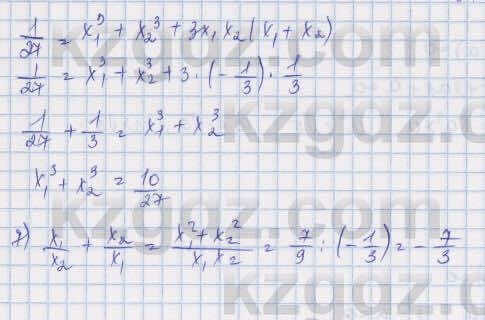 1/27 = x₁³ + x₂³ + 3x₁x₂(x₁ + x₂)
1/27 = x₁³ + x₂³ + 3 · (-1/3) · 1/3
1/27 + 1/3 = x₁³ + x₂³
x₁³ + x₂³ = 10/27
7) x₁/x₂ + x₂/x₁ = (x₁² + x₂²)/(x₁x₂) = 7/9 : (-1/3) = -7/3
kzgdz.com